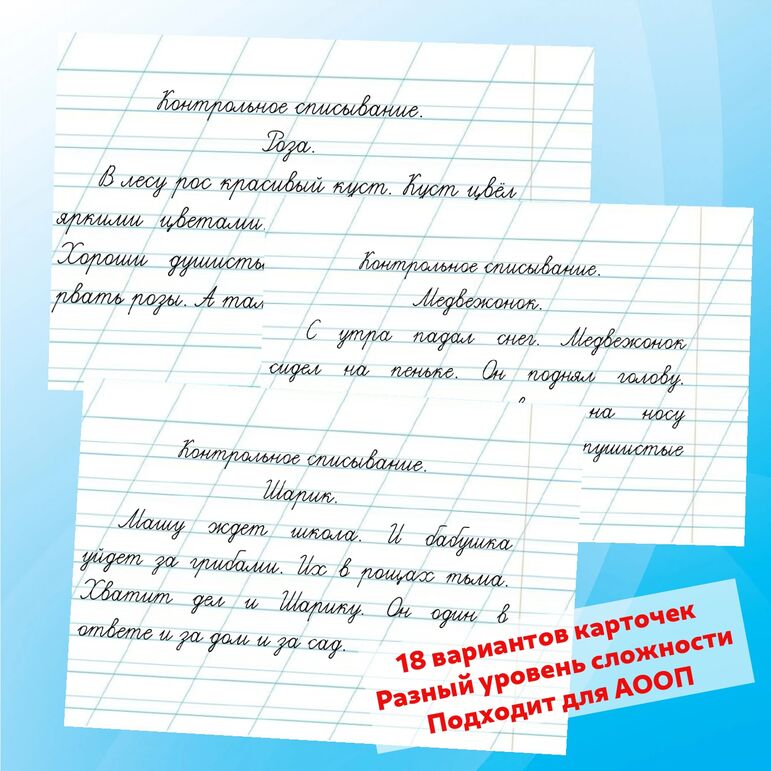 Контрольное списывание.
Роза.
В лесу рос красивый куст. Куст цвёл
яркими цветами.
Хороши душисты
рвать розы. А там
Контрольное списывание.
Медвежонок.
С утра падал снег. Медвежонок
сидел на пеньке. Он поднял голову.
на носу
пушистые
Контрольное списывание.
Шарик.
Машу ждет школа. И бабушка
уйдет за грибами. Их в рощах тьма.
Хватит дел и Шарику. Он один в
ответе и за дом и за сад.
18 вариантов карточек
Разный уровень сложности
Подходит для АООП